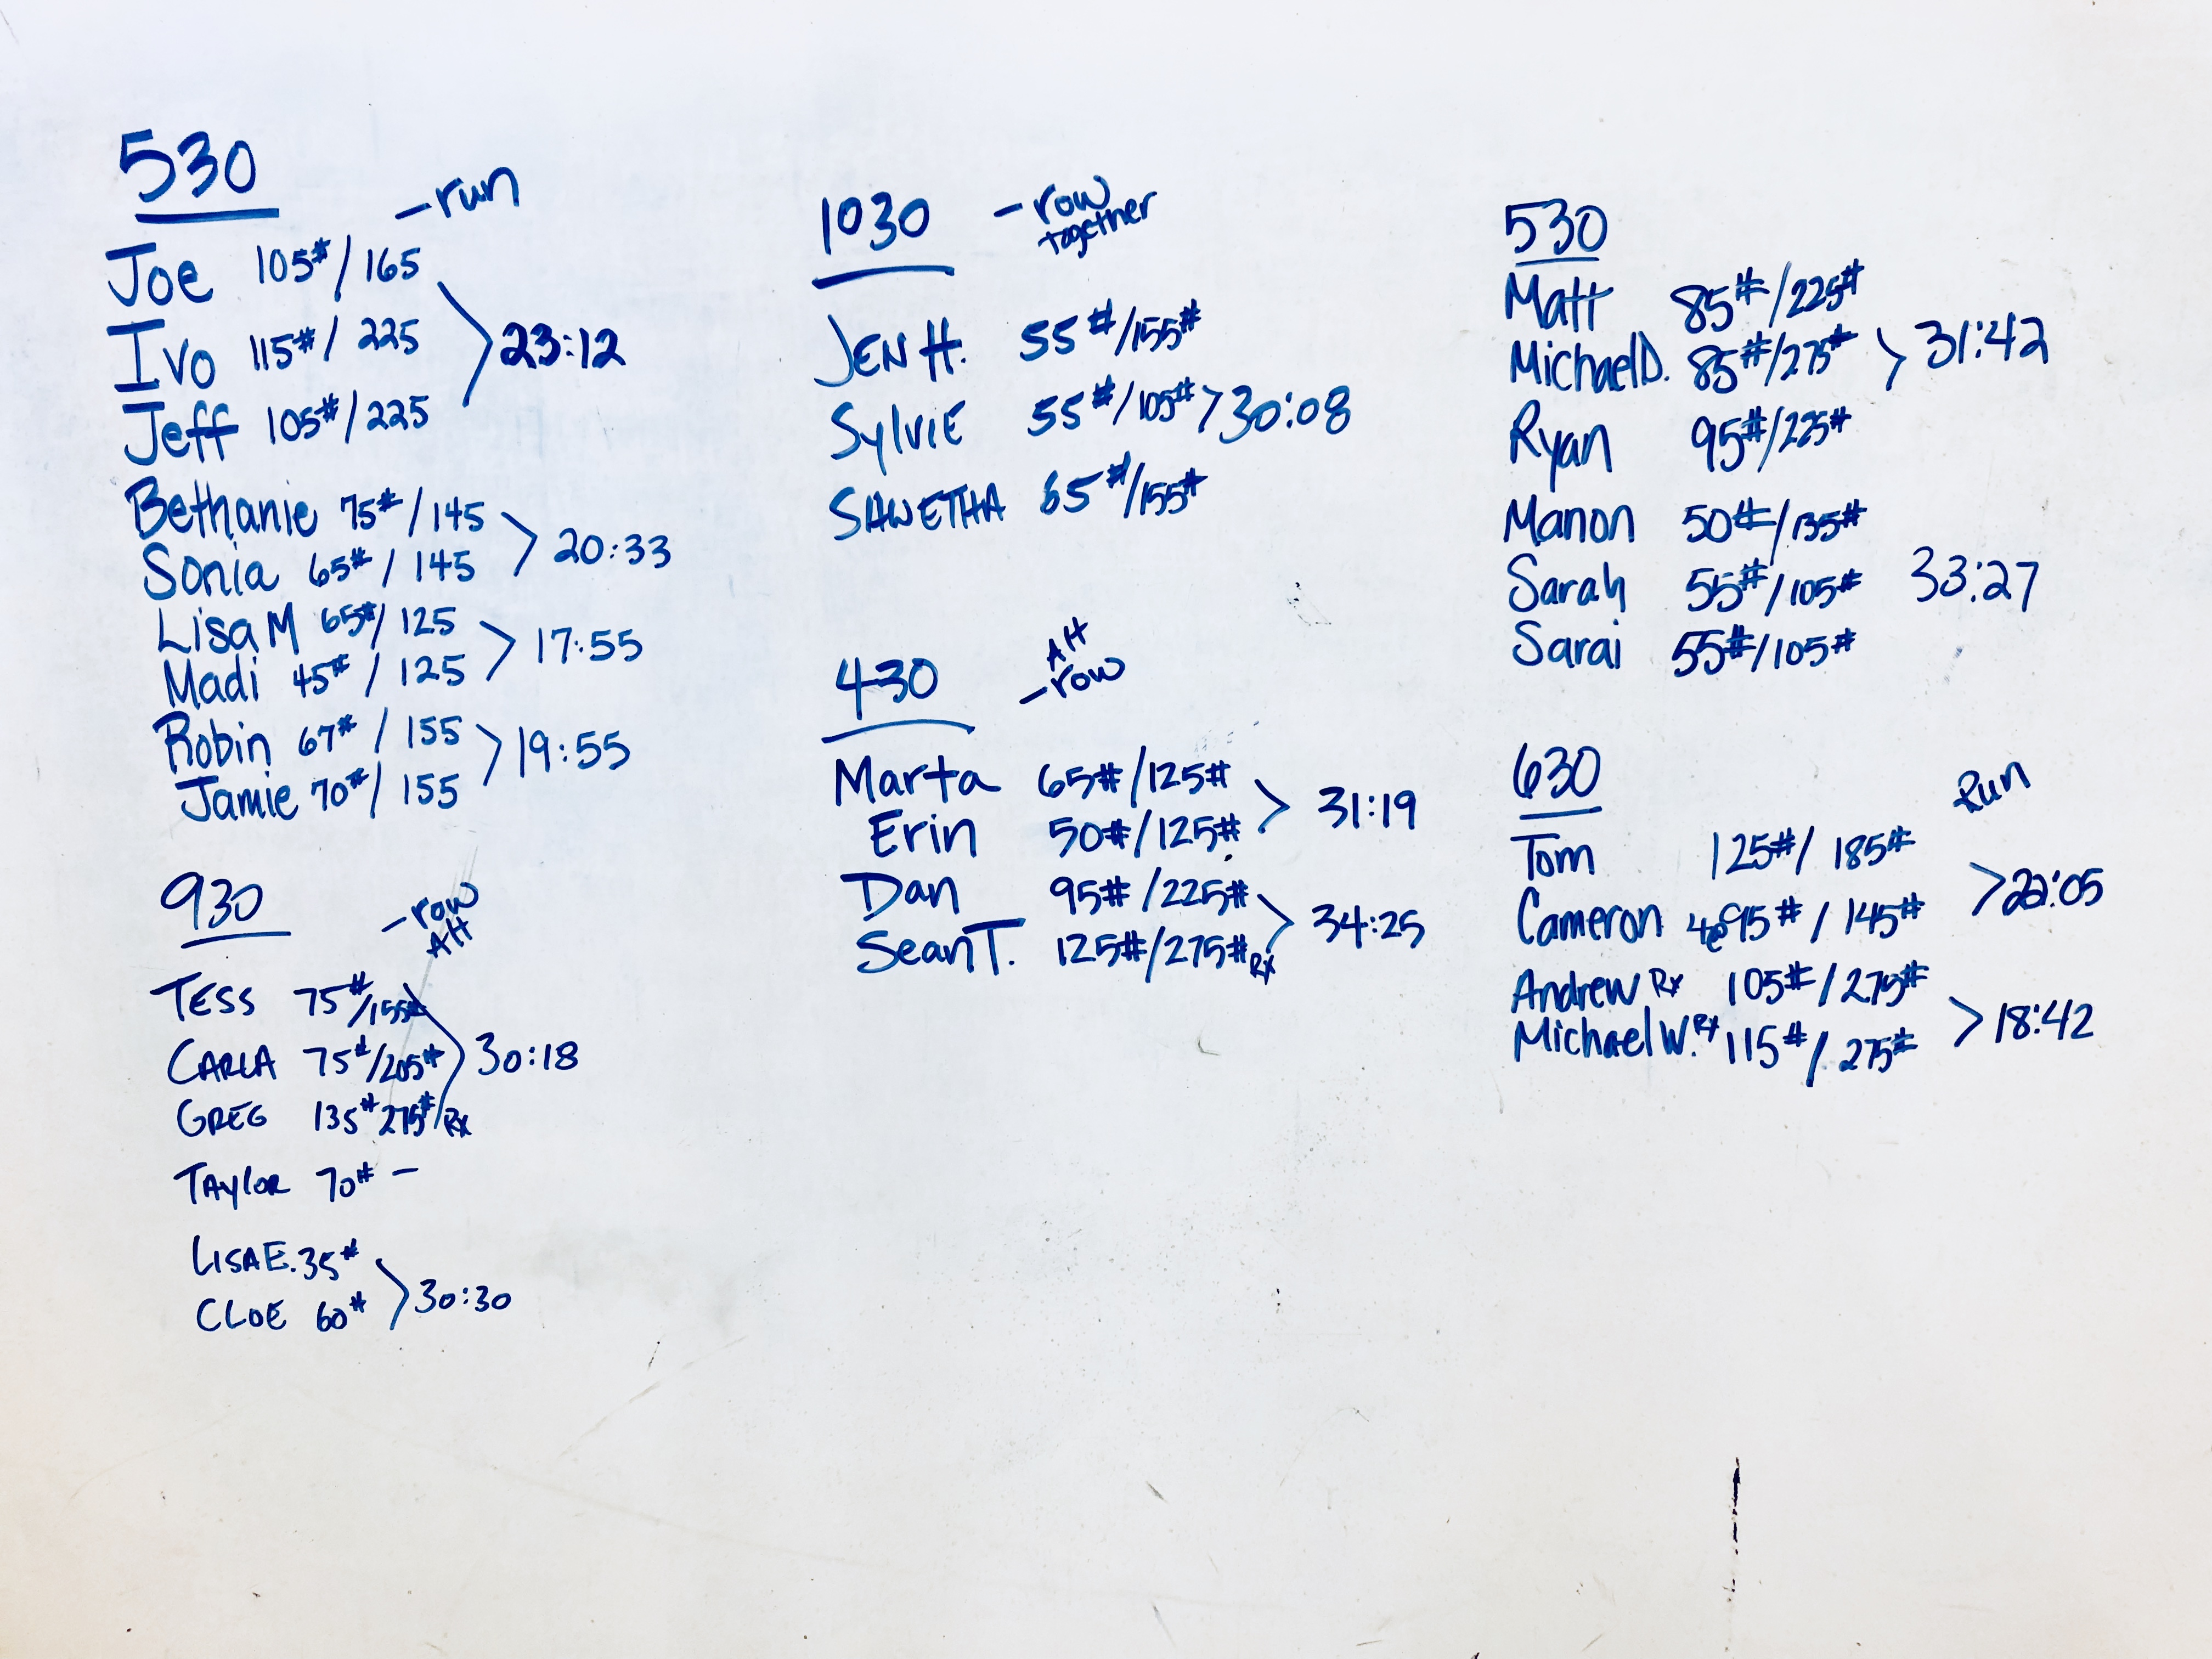 530
-run
Joe 105#/165
Ivo 115#/225
Jeff 105#/225
23:12
Bethanie 75#/145
Sonia 65#/145
20:33
Lisa M 65#/125
Madi 45#/125
17:55
Robin 67#/155
Jamie 70#/155
19:55
930
-row
Alt
TESS 75#/155#
CARLA 75#/205#
GREG 135# 275#/Rx
30:18
TAYLOR 70# -
LISA E. 35#
CLOE 60#
30:30
1030
-row
together
JEN H. 55#/155#
SYLVIE 55#/105# >30:08
SHWETHA 65#/155#
430
Alt
-row
Marta 65#/125#
Erin 50#/125#
31:19
Dan 95#/225#
Sean T. 125#/275# Rx
34:25
530
Matt 85#/225#
Michael D. 85#/275# > 31:42
Ryan 95#/225#
Manon 50#/135#
Sarah 55#/105# 33:27
Sarai 55#/105#
630
Run
Tom 125#/185#
Cameron 4@95#/145#
>22:05
Andrew Rx 105#/275#
Michael W. Rx 115#/275#
>18:42